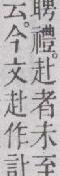 聘禮。赴者未至
云。今文赴作訃